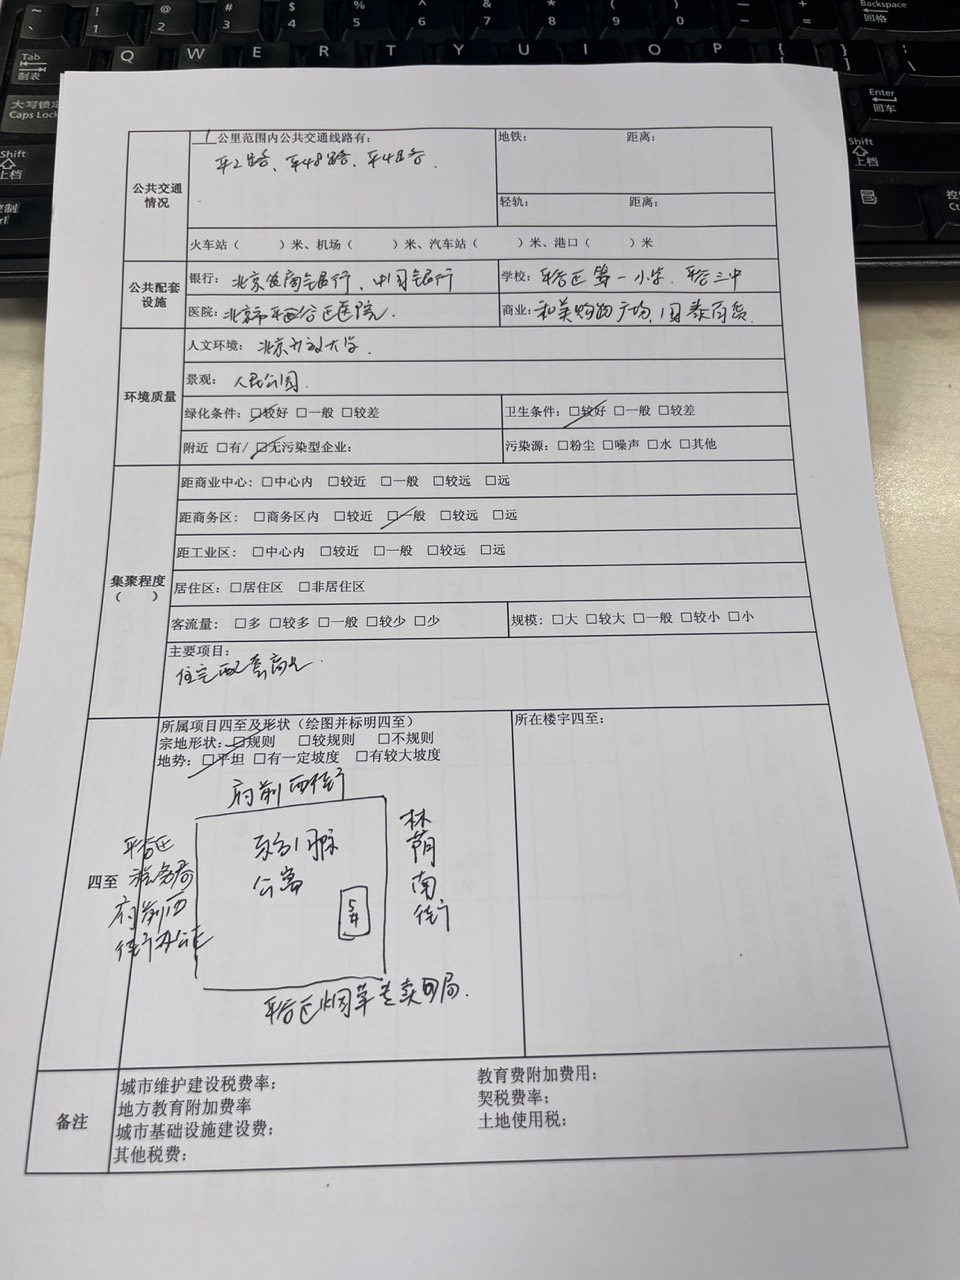 ~
!
1
@
2
#
3
$
4
%
5
^
6
&
7
*
8
(
9
)
0
+
=
Backspace
回格
Tab
制表
Q W E R T Y U I O P
{
[
}
]
大写锁定
Caps Lock
Enter
回车
Shift
上档
Shift
上档
公共交通
情况
1 公里范围内公共交通线路有:
平2路、平48路、平42路.
地铁: 距离:
轻轨: 距离:
火车站( )米、机场( )米、汽车站( )米、港口( )米
公共配套
设施
银行: 北京农商银行、中国银行
学校: 平谷区第一小学. 平谷三中
医院: 北京市平谷区医院.
商业: 和美购物广场、国泰百货.
环境质量
人文环境: 北京开放大学.
景观: 人民公园.
绿化条件: ☑较好 □一般 □较差
卫生条件: ☑较好 □一般 □较差
附近 □有/ ☑无污染型企业:
污染源: □粉尘 □噪声 □水 □其他
集聚程度
( )
距商业中心: □中心内 □较近 □一般 □较远 □远
距商务区: □商务区内 □较近 ☑一般 □较远 □远
距工业区: □中心内 □较近 □一般 □较远 □远
居住区: □居住区 □非居住区
客流量: □多 □较多 □一般 □较少 □少
规模: □大 □较大 □一般 □较小 □小
主要项目:
住宅配套商业.
四至
所属项目四至及形状(绘图并标明四至)
宗地形状: ☑规则 □较规则 □不规则
地势: ☑平坦 □有一定坡度 □有较大坡度
所在楼宇四至:
府前西街
平谷区
税务局
府前西
街办公区
公寓
5#
林荫南街
平谷区烟草专卖局.
备注
城市维护建设税费率:
教育费附加费用:
地方教育附加费率
契税费率:
城市基础设施建设费:
土地使用税:
其他税费: